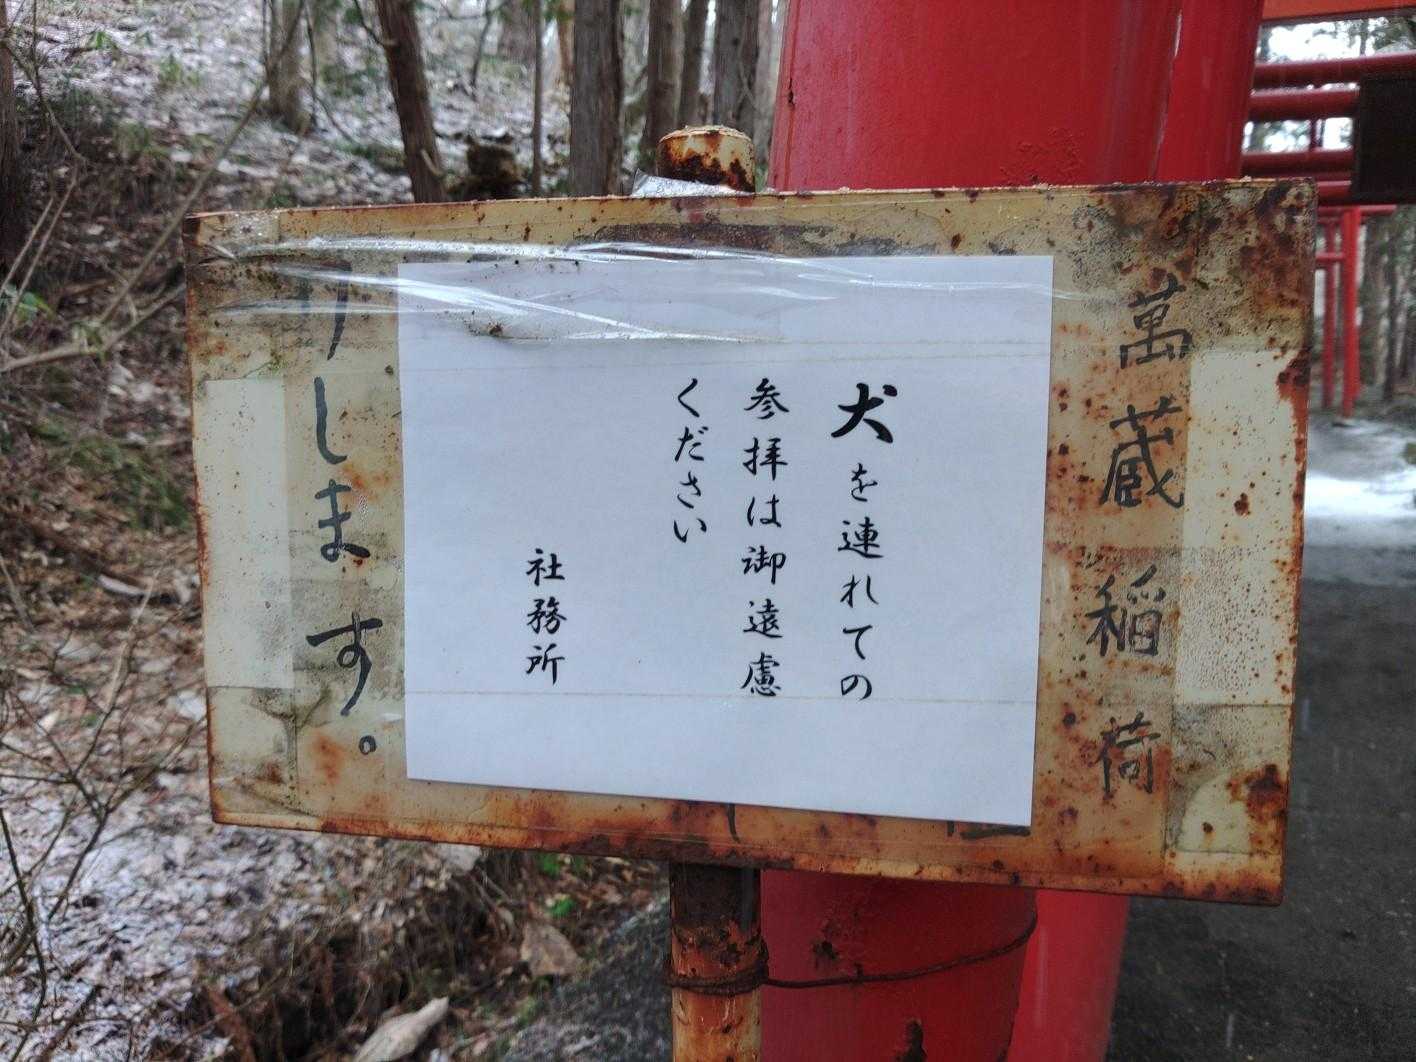 萬蔵稲荷
犬を連れての
参拝は御遠慮
ください
社務所
りします。